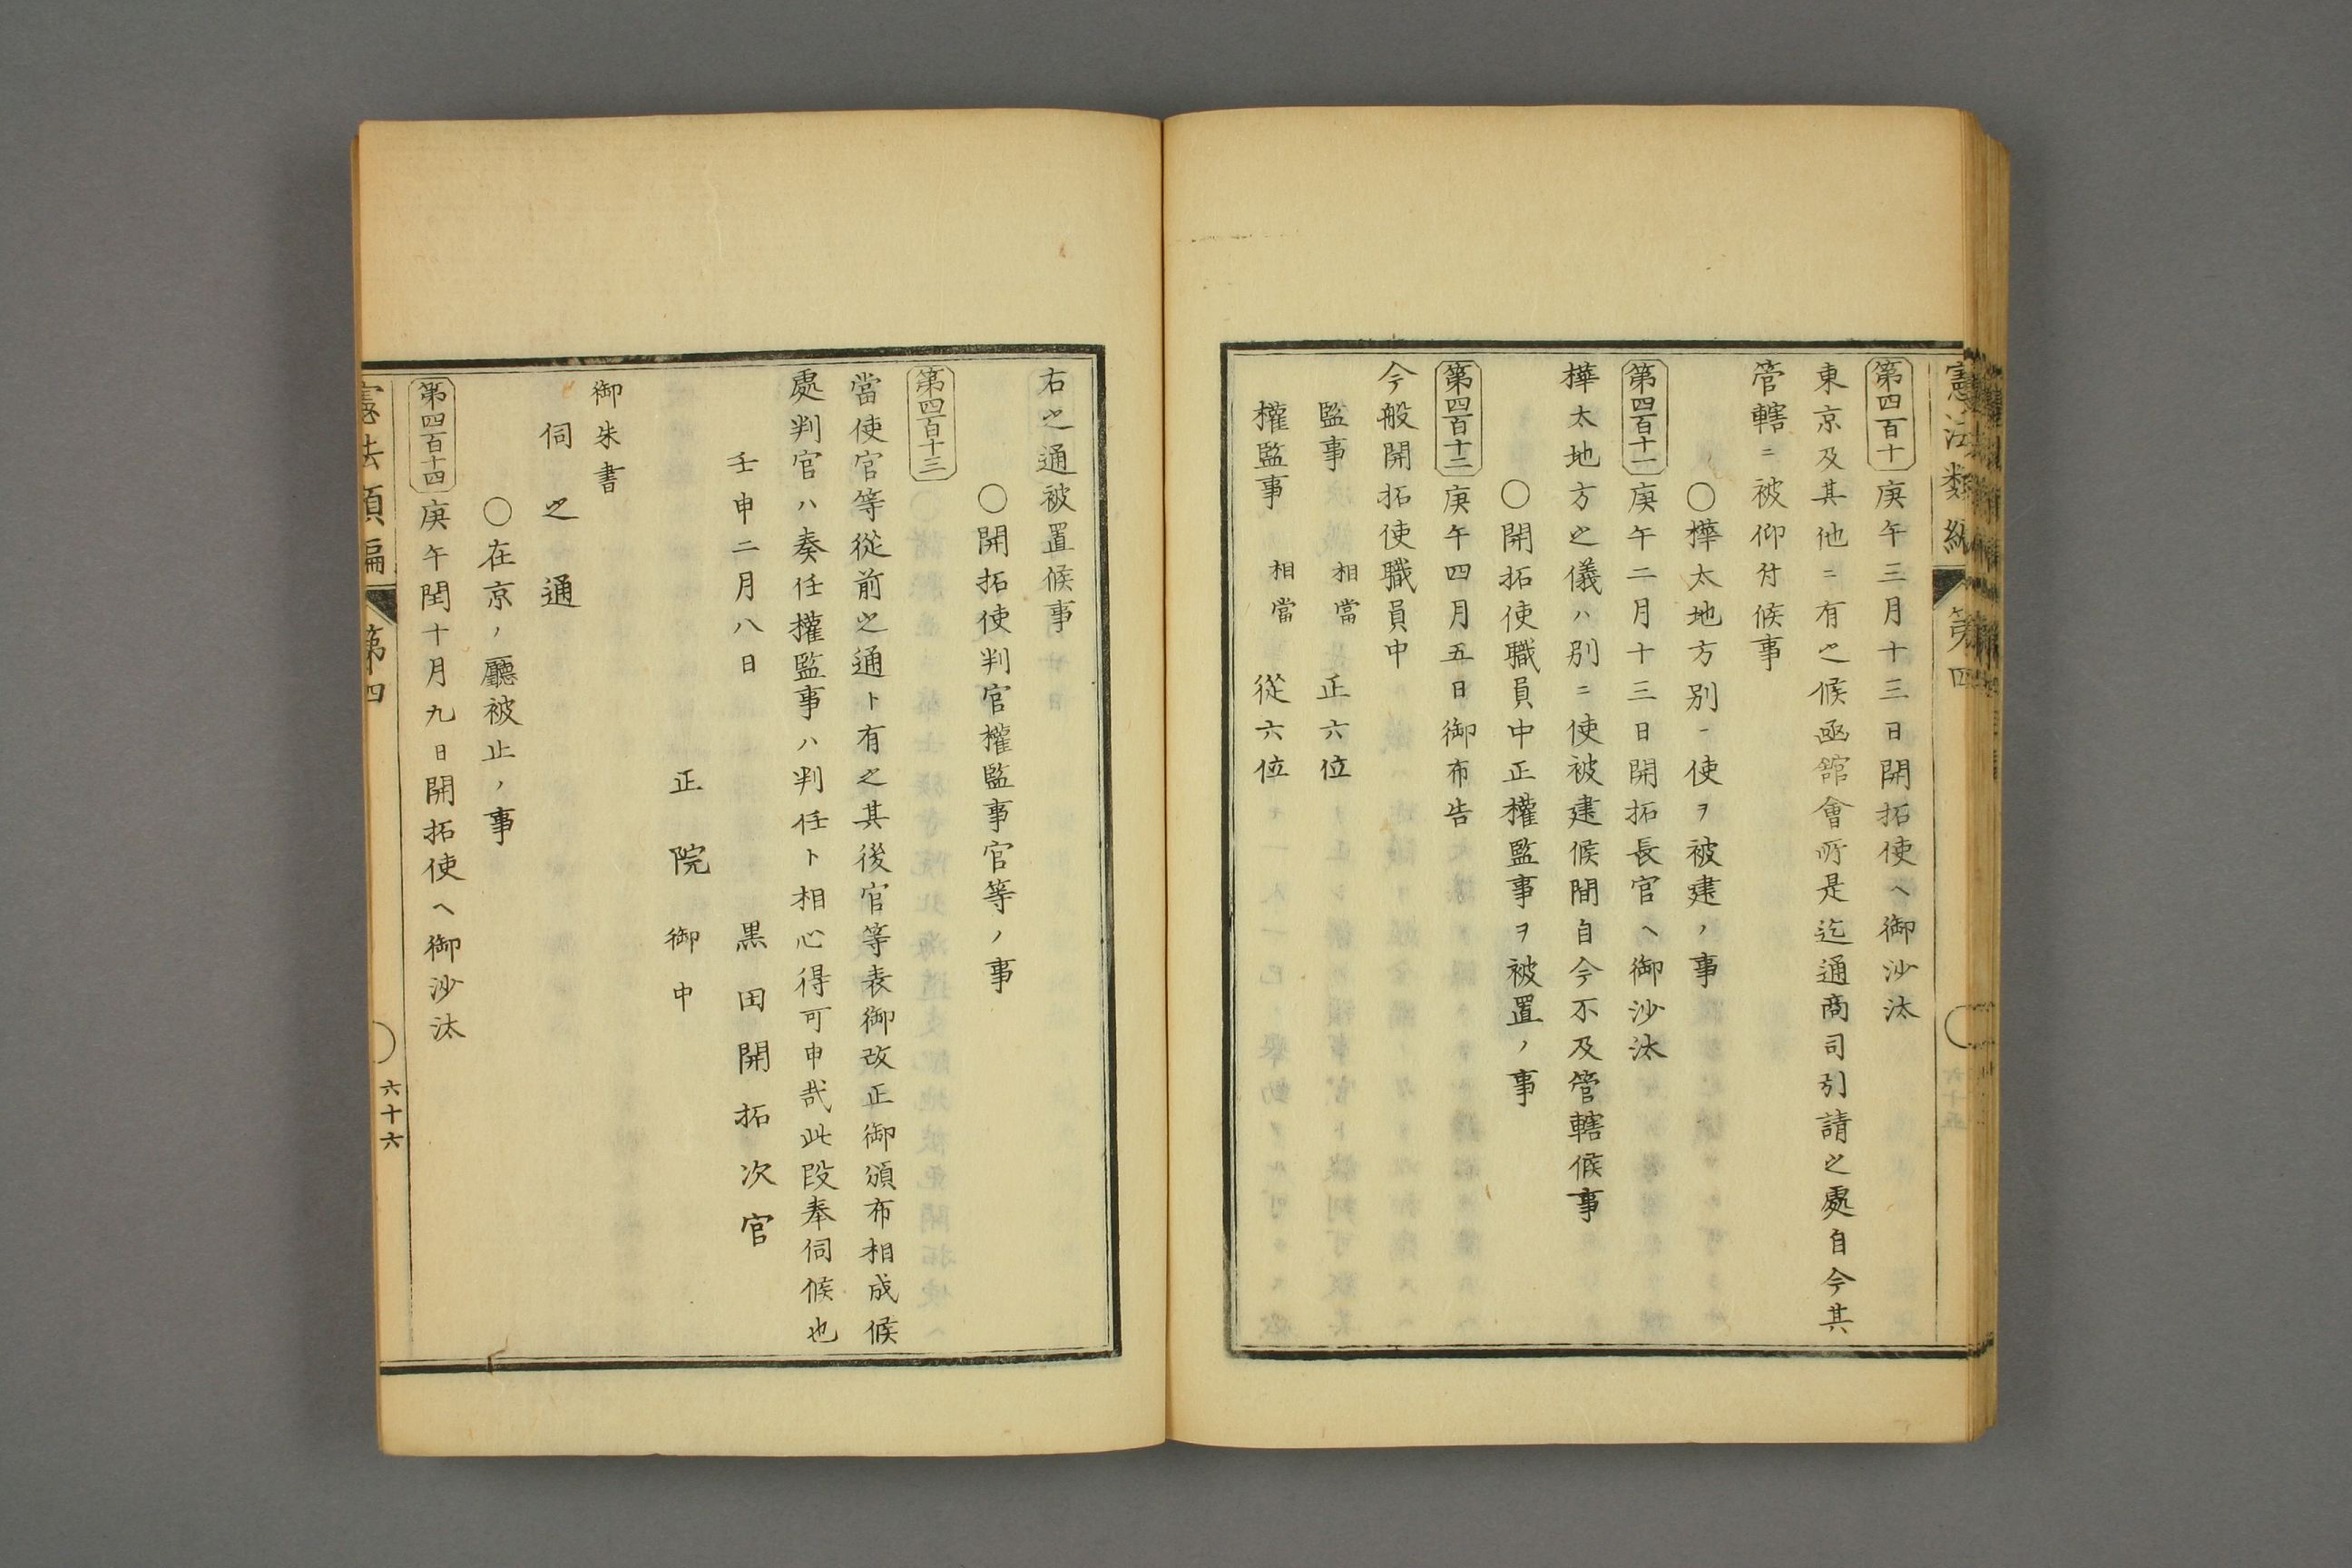 憲法類編 第四
第四百十 庚午三月十三日開拓使ヘ御沙汰
東京及其他ニ有之候凾館會所是迄通商司引請之處自今其
管轄ニ被仰付候事
〇樺太地方別ニ使ヲ被建ノ事
第四百十一 庚午二月十三日開拓長官ヘ御沙汰
樺太地方之儀ハ別ニ使被建候間自今不及管轄候事
〇開拓使職員中正權監事ヲ被置ノ事
第四百十二 庚午四月五日御布告
今般開拓使職員中
監事 相當 正六位
權監事 相當 從六位
右之通被置候事
〇開拓使判官權監事官等ノ事
第四百十三
當使官等從前之通ト有之其後官等表御改正御頒布相成候
處判官ハ奏任權監事ハ判任ト相心得可申哉此段奉伺候也
壬申二月八日 黒田開拓次官
正院御中
御朱書
伺之通
〇在京ノ廳被止ノ事
第四百十四 庚午閏十月九日開拓使ヘ御沙汰
憲法類編 第四 六十六